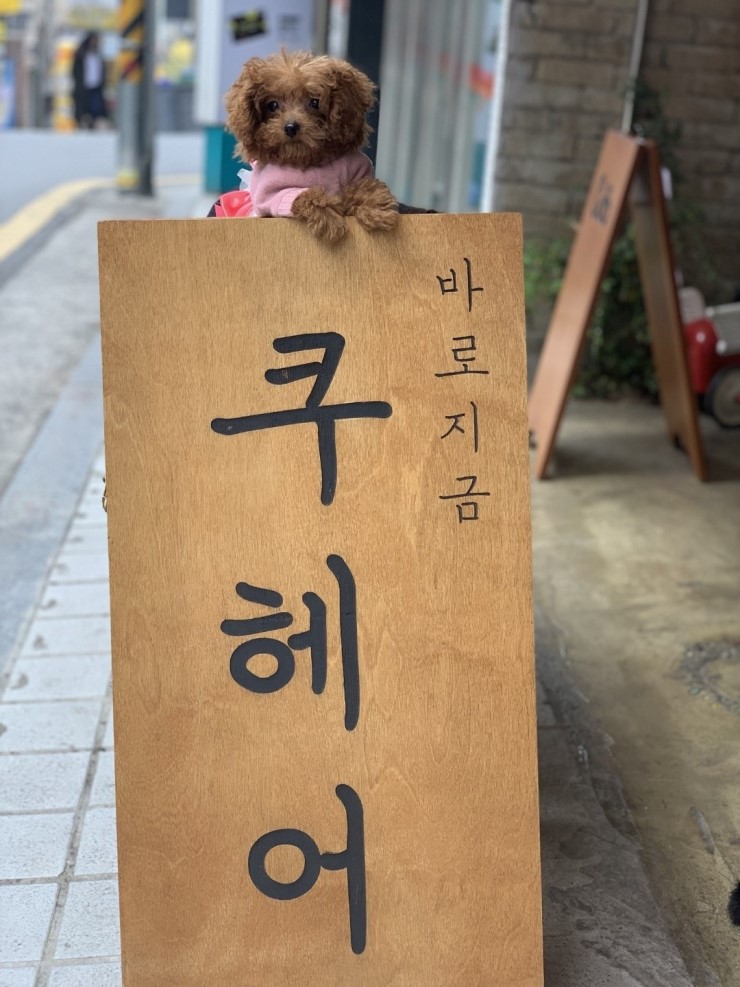 바로지금
쿠헤어